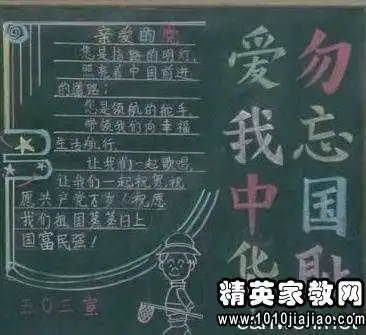 亲爱的党
您是指路的明灯,
照亮着中国前进
的道路;
您是领航的舵手,
带领我们向幸福
生活航行.
让我们一起歌唱,
让我们一起祝
愿共产党万岁!祝愿
我们祖国蒸蒸日上
国富民强!
五0三宣
勿忘国耻
爱我中华
精英家教网
www.1010jiajiao.com